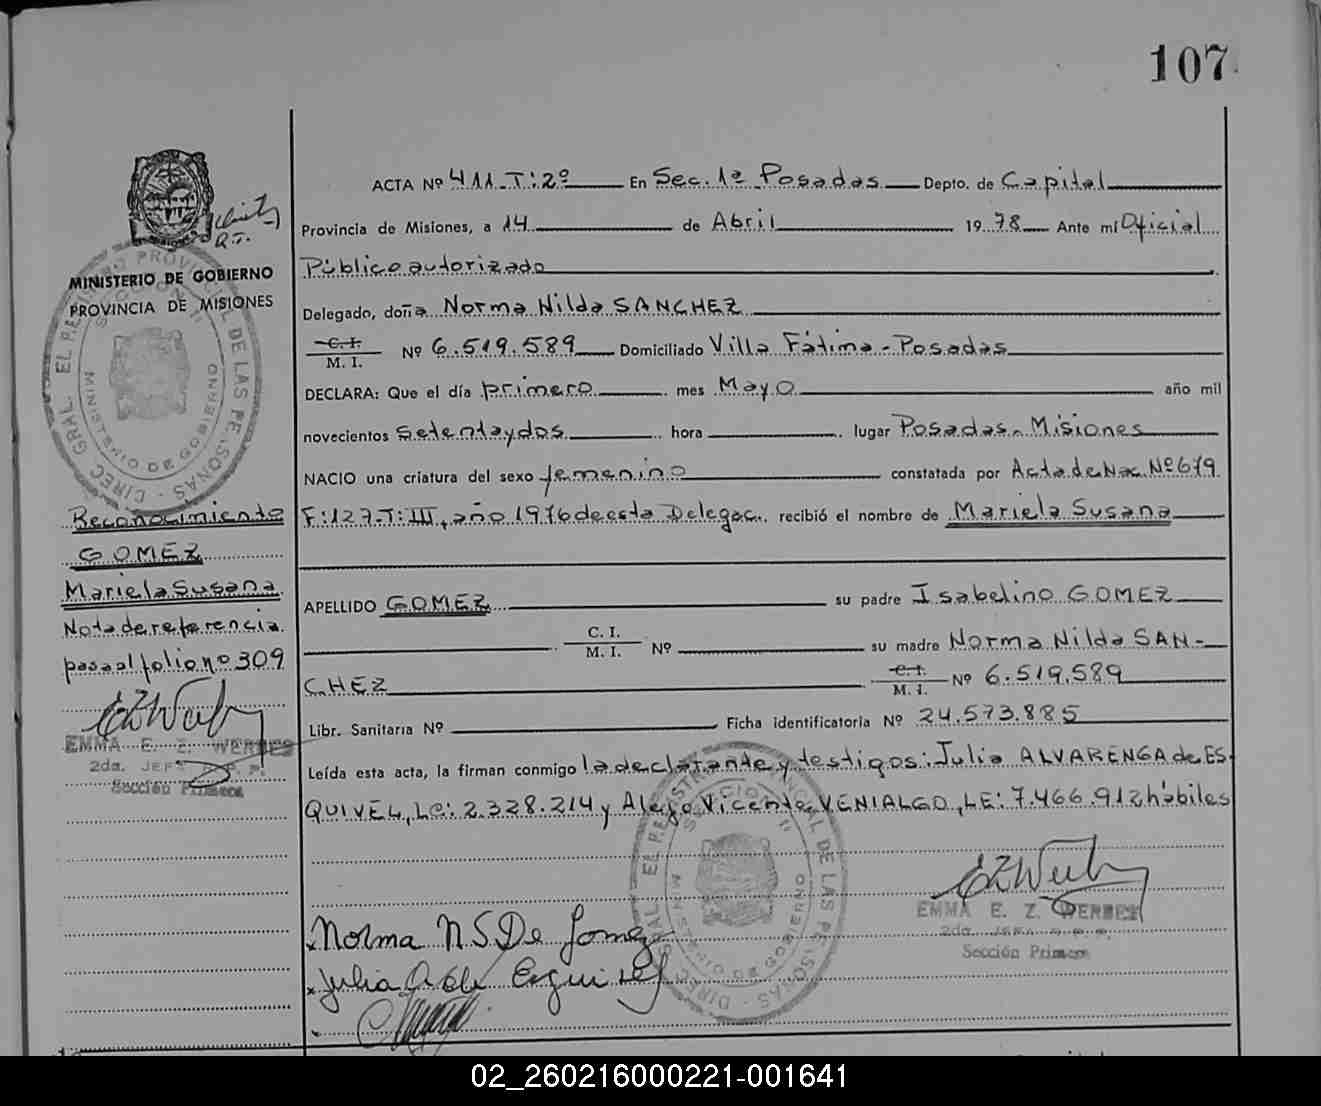 107
ACTA Nº 411.T:2º En Sec. 1ª Posadas Depto. de Capital
Provincia de Misiones, a 14 de Abril 1978 Ante mí Oficial
Público autorizado
Delegado, doña Norma Nilda SANCHEZ
C. I.
M. I. Nº 6.519.589 Domiciliado Villa Fátima - Posadas
DECLARA: Que el día primero mes Mayo año mil
novecientos setenta y dos hora lugar Posadas - Misiones
NACIO una criatura del sexo femenino constatada por Acta de Nac. Nº 679
F:127.T:III, año 1976 de esta Delegac. recibió el nombre de Mariela Susana
APELLIDO GOMEZ su padre Isabelino GOMEZ
C. I.
M. I. Nº su madre Norma Nilda SAN-
CHEZ C. I.
M. I. Nº 6.519.589
Libr. Sanitaria Nº Ficha identificatoria Nº 24.573.885
Leída esta acta, la firman conmigo la declarante y testigos: Julia ALVARENGA de ES-
QUIVEL, LC: 2.328.214 y Alejo Vicente VENIALGO, LE: 7.466.912 hábiles
EMMA E. Z. WERBES
2da. JEFA R.P.P.
Sección Primera
Norma N S De Gomez
Julia A de Esquivel
MINISTERIO DE GOBIERNO
PROVINCIA DE MISIONES
DIREC. GRAL. EL REGISTRO PROVINCIAL DE LAS PERSONAS
SECCION 1ª
MINISTERIO DE GOBIERNO
Reconocimiento
GOMEZ
Mariela Susana
Nota de referencia
pasa al folio nº 309
EMMA E. Z. WERBES
2da. JEFA R.P.P.
Sección Primera
DIREC. GRAL. EL REGISTRO PROVINCIAL DE LAS PERSONAS
SECCION 1ª
MINISTERIO DE GOBIERNO
02_260216000221-001641